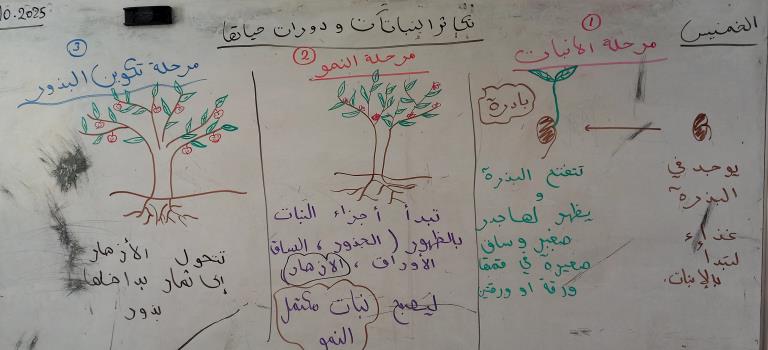 الخميس
10.2025
تكاثر النباتات و دورات حياتها
①
مرحلة الانبات
بادرة
يوجد في
البذرة
غذاء
لتبدأ
بالإنبات.
تنفتح البذرة
و
يظهر لها جذر
صغير و ساق
صغيرة في قمتها
ورقة او ورقتين
②
مرحلة النمو
تبدأ أجزاء النبات
بالظهور (الجذور، الساق
الأوراق، الأزهار)
ليصبح نبات مكتمل
النمو
③
مرحلة تكوين البذور
تتحول الأزهار
إلى ثمار بداخلها
بذور